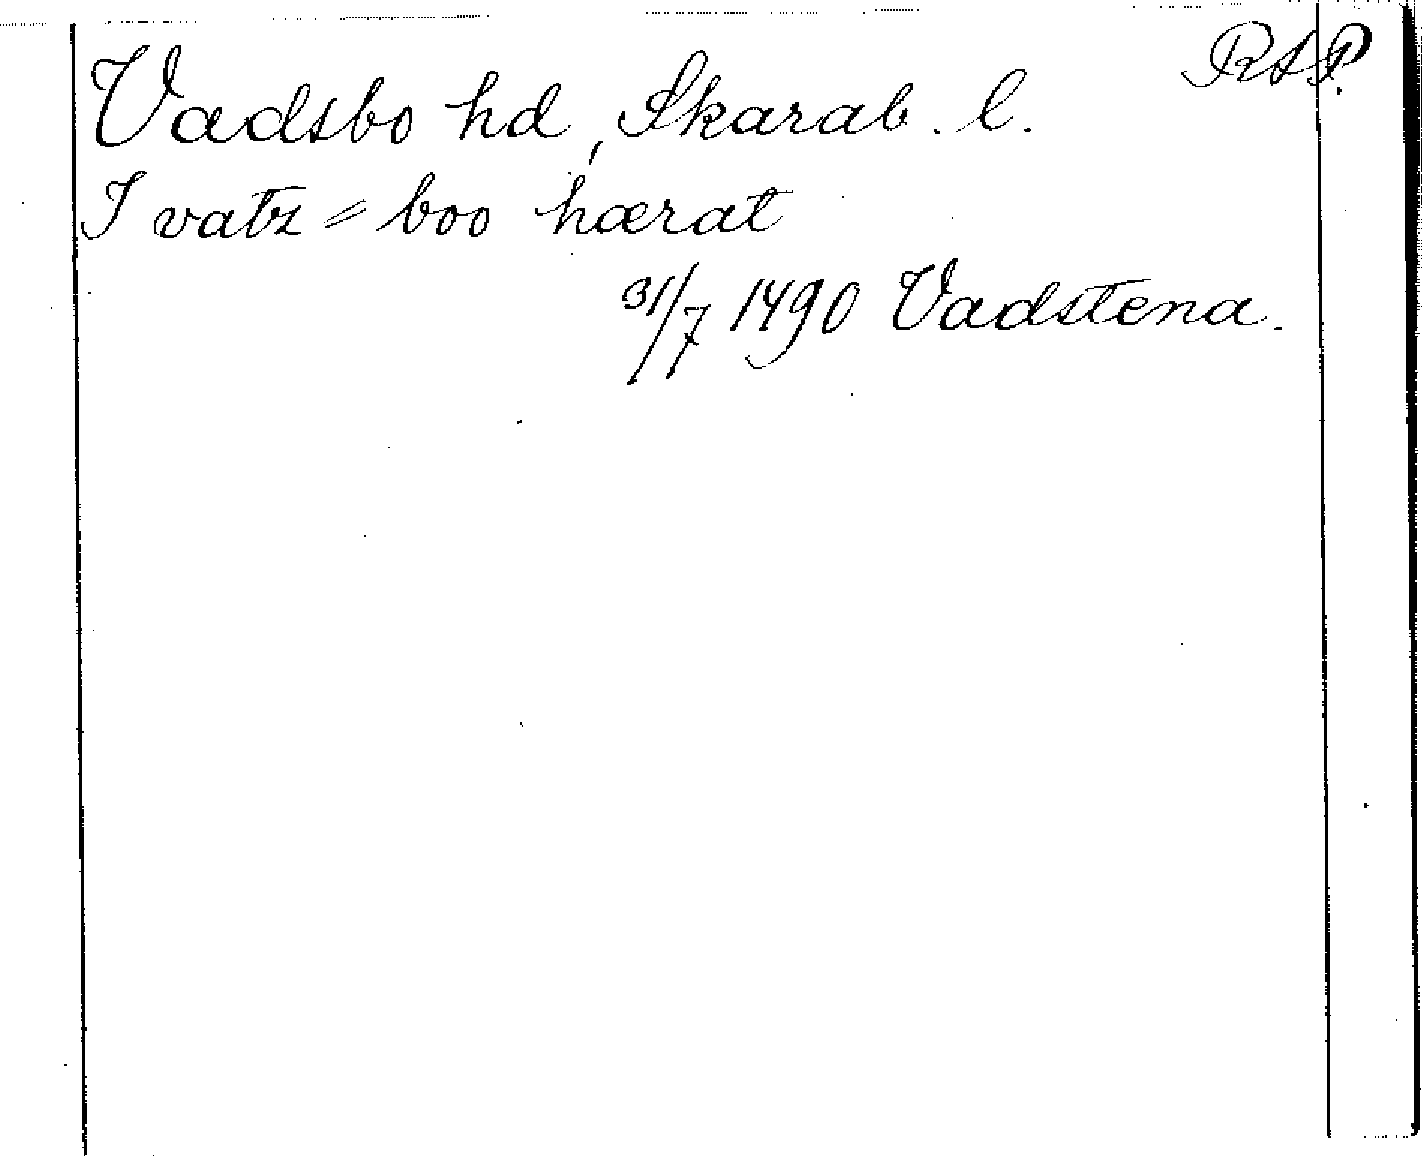 RAP.
Vadsbo hd, Skarab. l.
I vatz = boo hærat
31/7 1490 Vadstena.